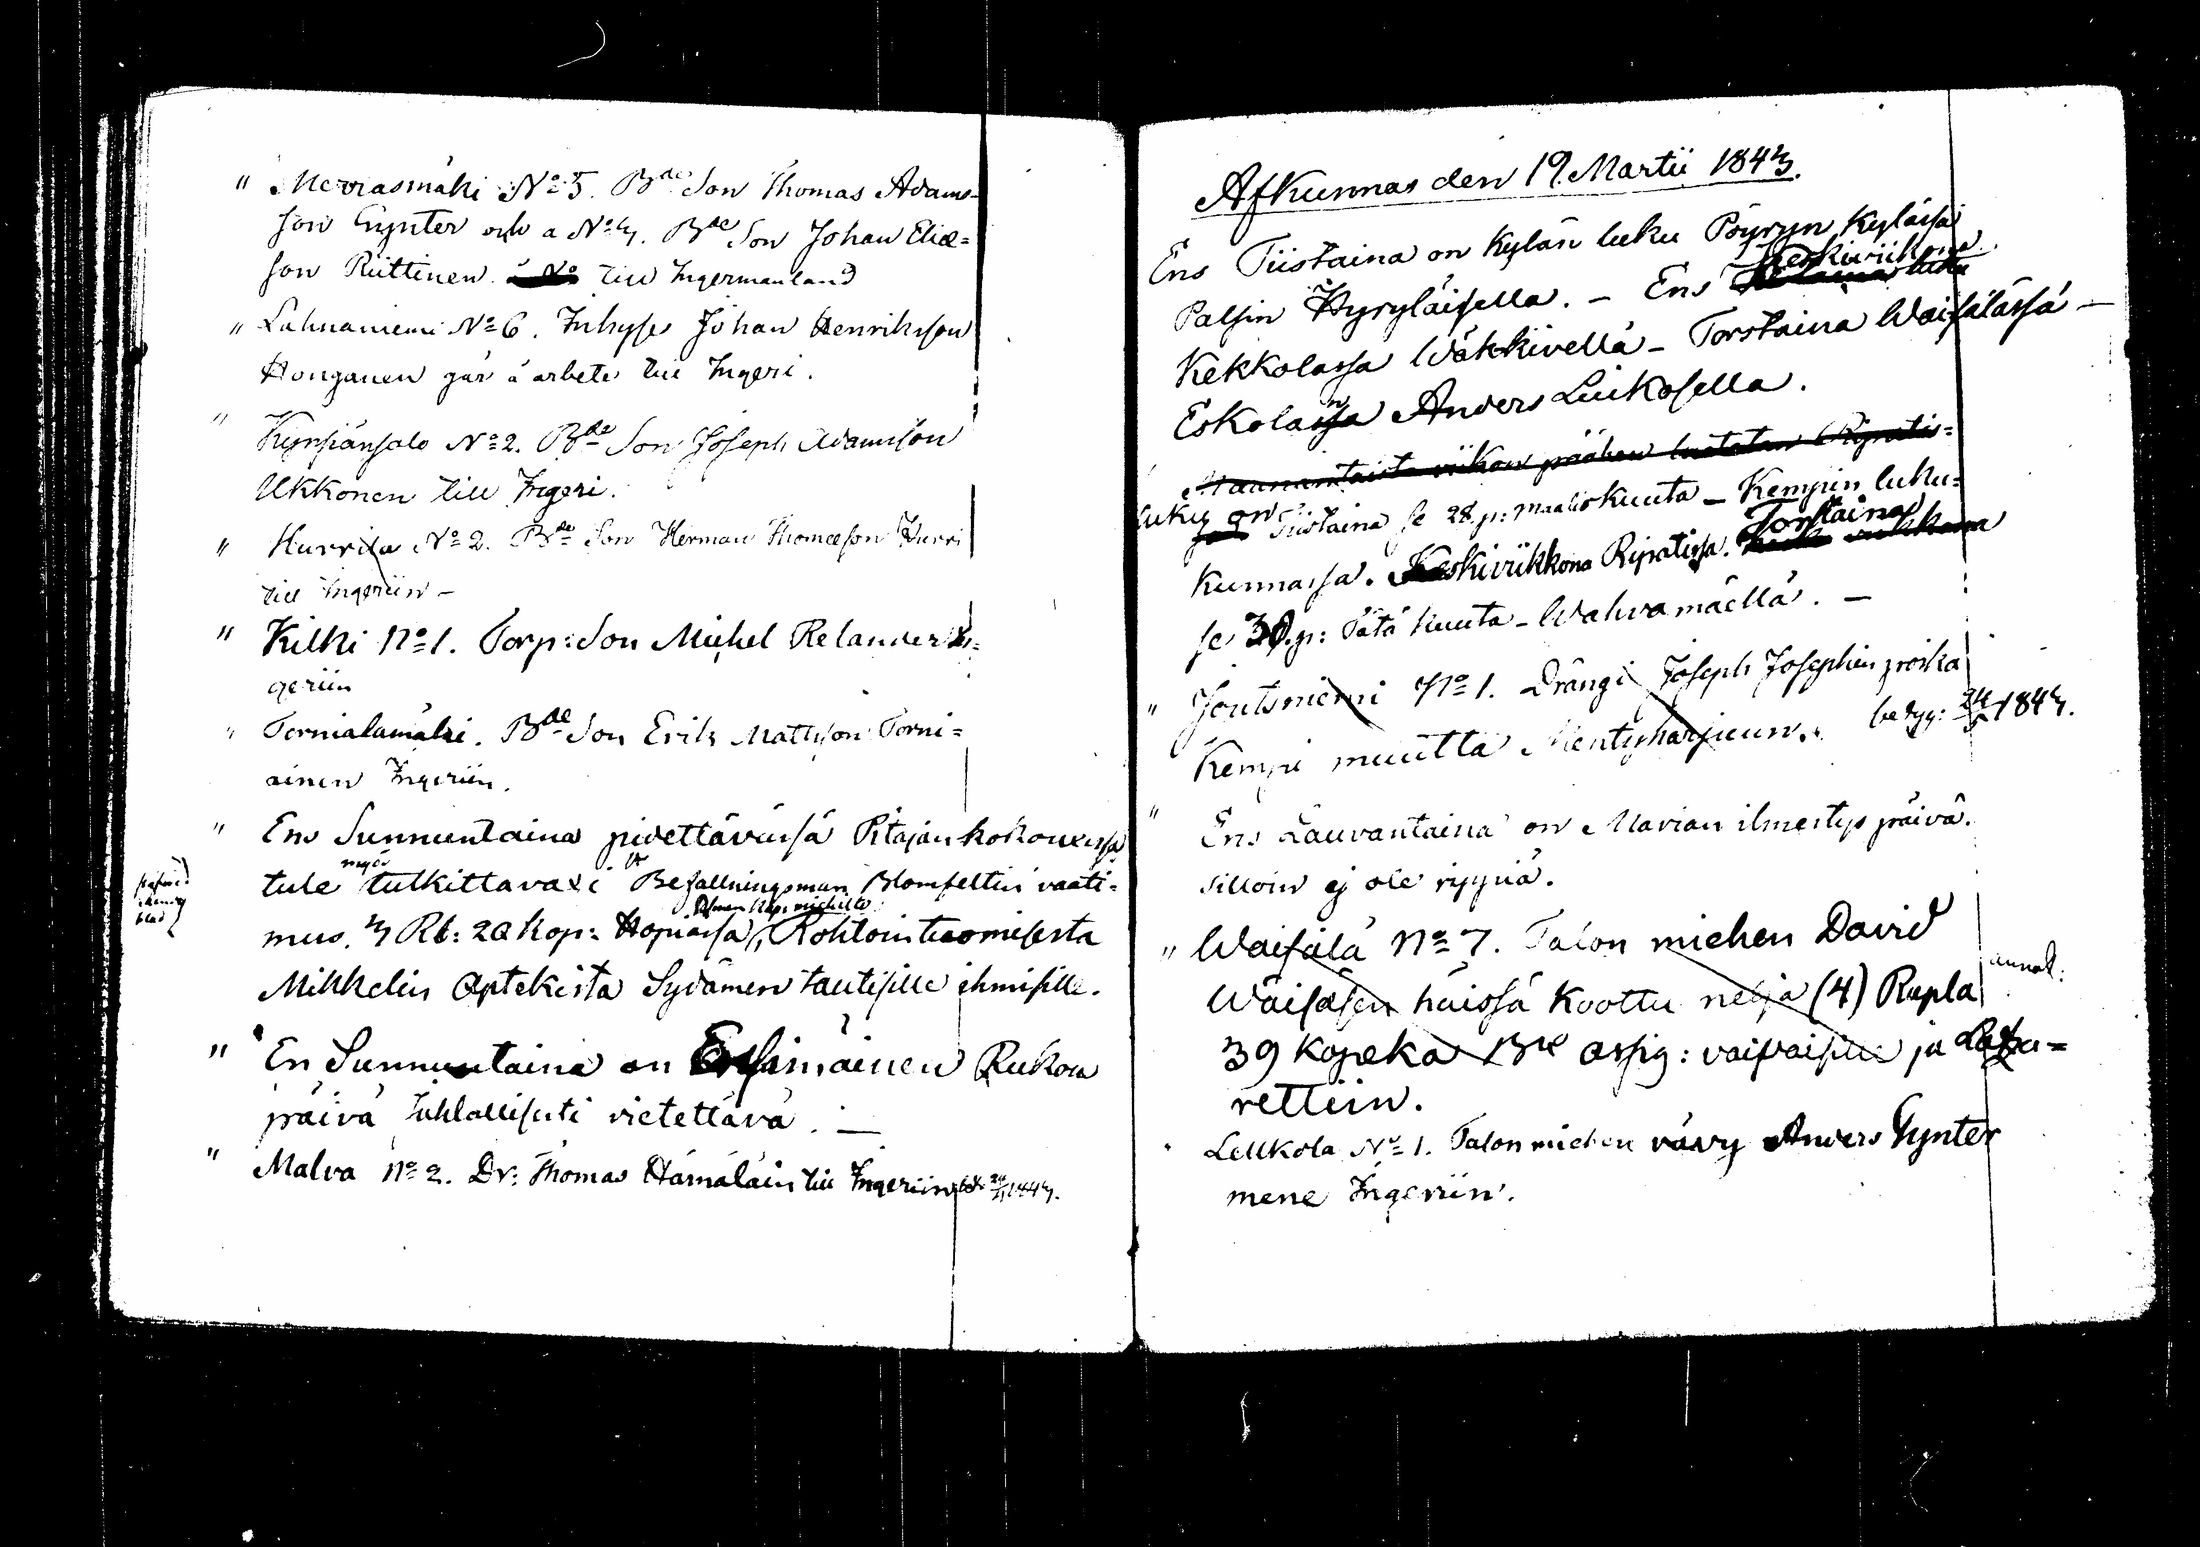 " Merrasmäki No 5. Bde Son Thomas Adams-
son Gynter och a No 4. Bde Son Johan Elia=
son Riittinen till Ingermanland
" Lahnaniemi No 6. Inhyses Johan Henriksson
Honganen går å arbete till Ingeri.
" Kyrsiänsalo No 2. Bde Son Joseph Adamsson
Ukkonen till Ingeri.
" Hurrila No 2. Bde Son Herman Thomasson Hurri
till Ingeriin -
" Kilki No 1. Torp: Son Michel Relander In-
geriin
" Tornialamäki. Bde Son Erik Mattsson Torni=
ainen Ingeriin.
" Ens Sunnuntaina pidettävässä Pitäjän kokouxessa
tule myös tutkittavaxi Befallningsman Blomfeltin vaati=
mus. 4 Rb: 20 Kop: Hopiassa, Rohtoin tuomisesta
Mikkelin Aptekista Sydämen tautisille ihmisille.
" En Sunnuntaina on Ensimäinen Rukous
päivä Juhlallisesti vietettävä. —
" Malva No 2. Dr: Thomas Hämäläin till Ingeriin 1843.
Afkunnas den 19. Martii 1843.
Ens Tiistaina on Kylän luku Pöyryn Kylässä
Palsin Hyryläisellä. - Ens Keskiviikkona
Kekkolassa Wäkkivellä - Torstaina Waisälässä -
Eskolassa Anders Luikosella.
Maanantaista viikon päähän luetetan Ripatis=
luku on Tiistaina se 28. p: Maaliskuuta - Kempin luku=
kunnassa. Keskiviikkona Ripatissa. Torstaina
se 30. p: Tätä kuuta - Wahvamäellä. —
" Joutsniemi No 1. Drängi Joseph Josephin poika
Kempi muutta Mentyharjuun. betyg: 1843.
" Ens Lauvantaina on Marian ilmestys päivä.
silloin ej ole rippiä.
" Waisälä No 7. Talon miehen David
Wäisäsen häissä Koottu neljä (4) Rupla
39 kopeka Bco assig: vaivaisille ja Latza=
rettiin.
Lellkola No 1. Talon miehen vävy Anders Gynter
mene Ingeriin.